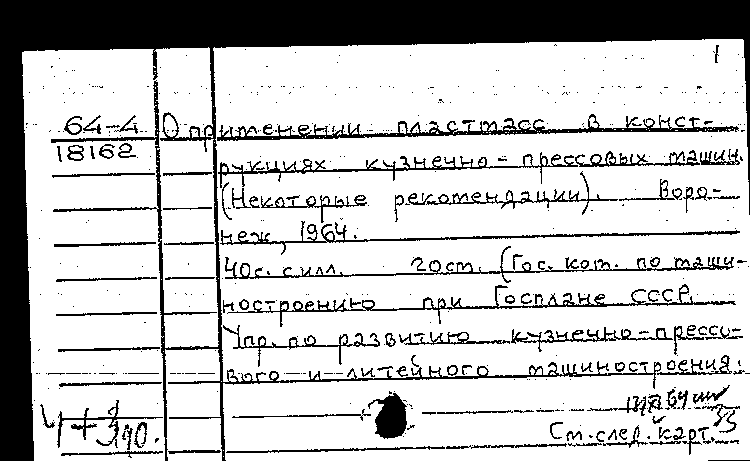 1
64-4 О применении пластмасс в конст-
18162 рукциях кузнечно-прессовых машин.
(Некоторые рекомендации). Воро-
неж, 1964.
40с. с илл. 20см. (Гос. ком. по маши-
ностроению при Госплане СССР.
Упр. по развитию кузнечно-прессо-
вого и литейного машиностроения.
См. след. карт.